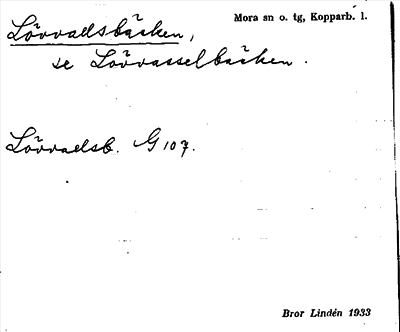 Mora sn o. tg, Kopparb. l.
Lövvadsbäcken,
se Lövvasselbäcken.
Lövvadsb. G 107.
Bror Lindén 1933